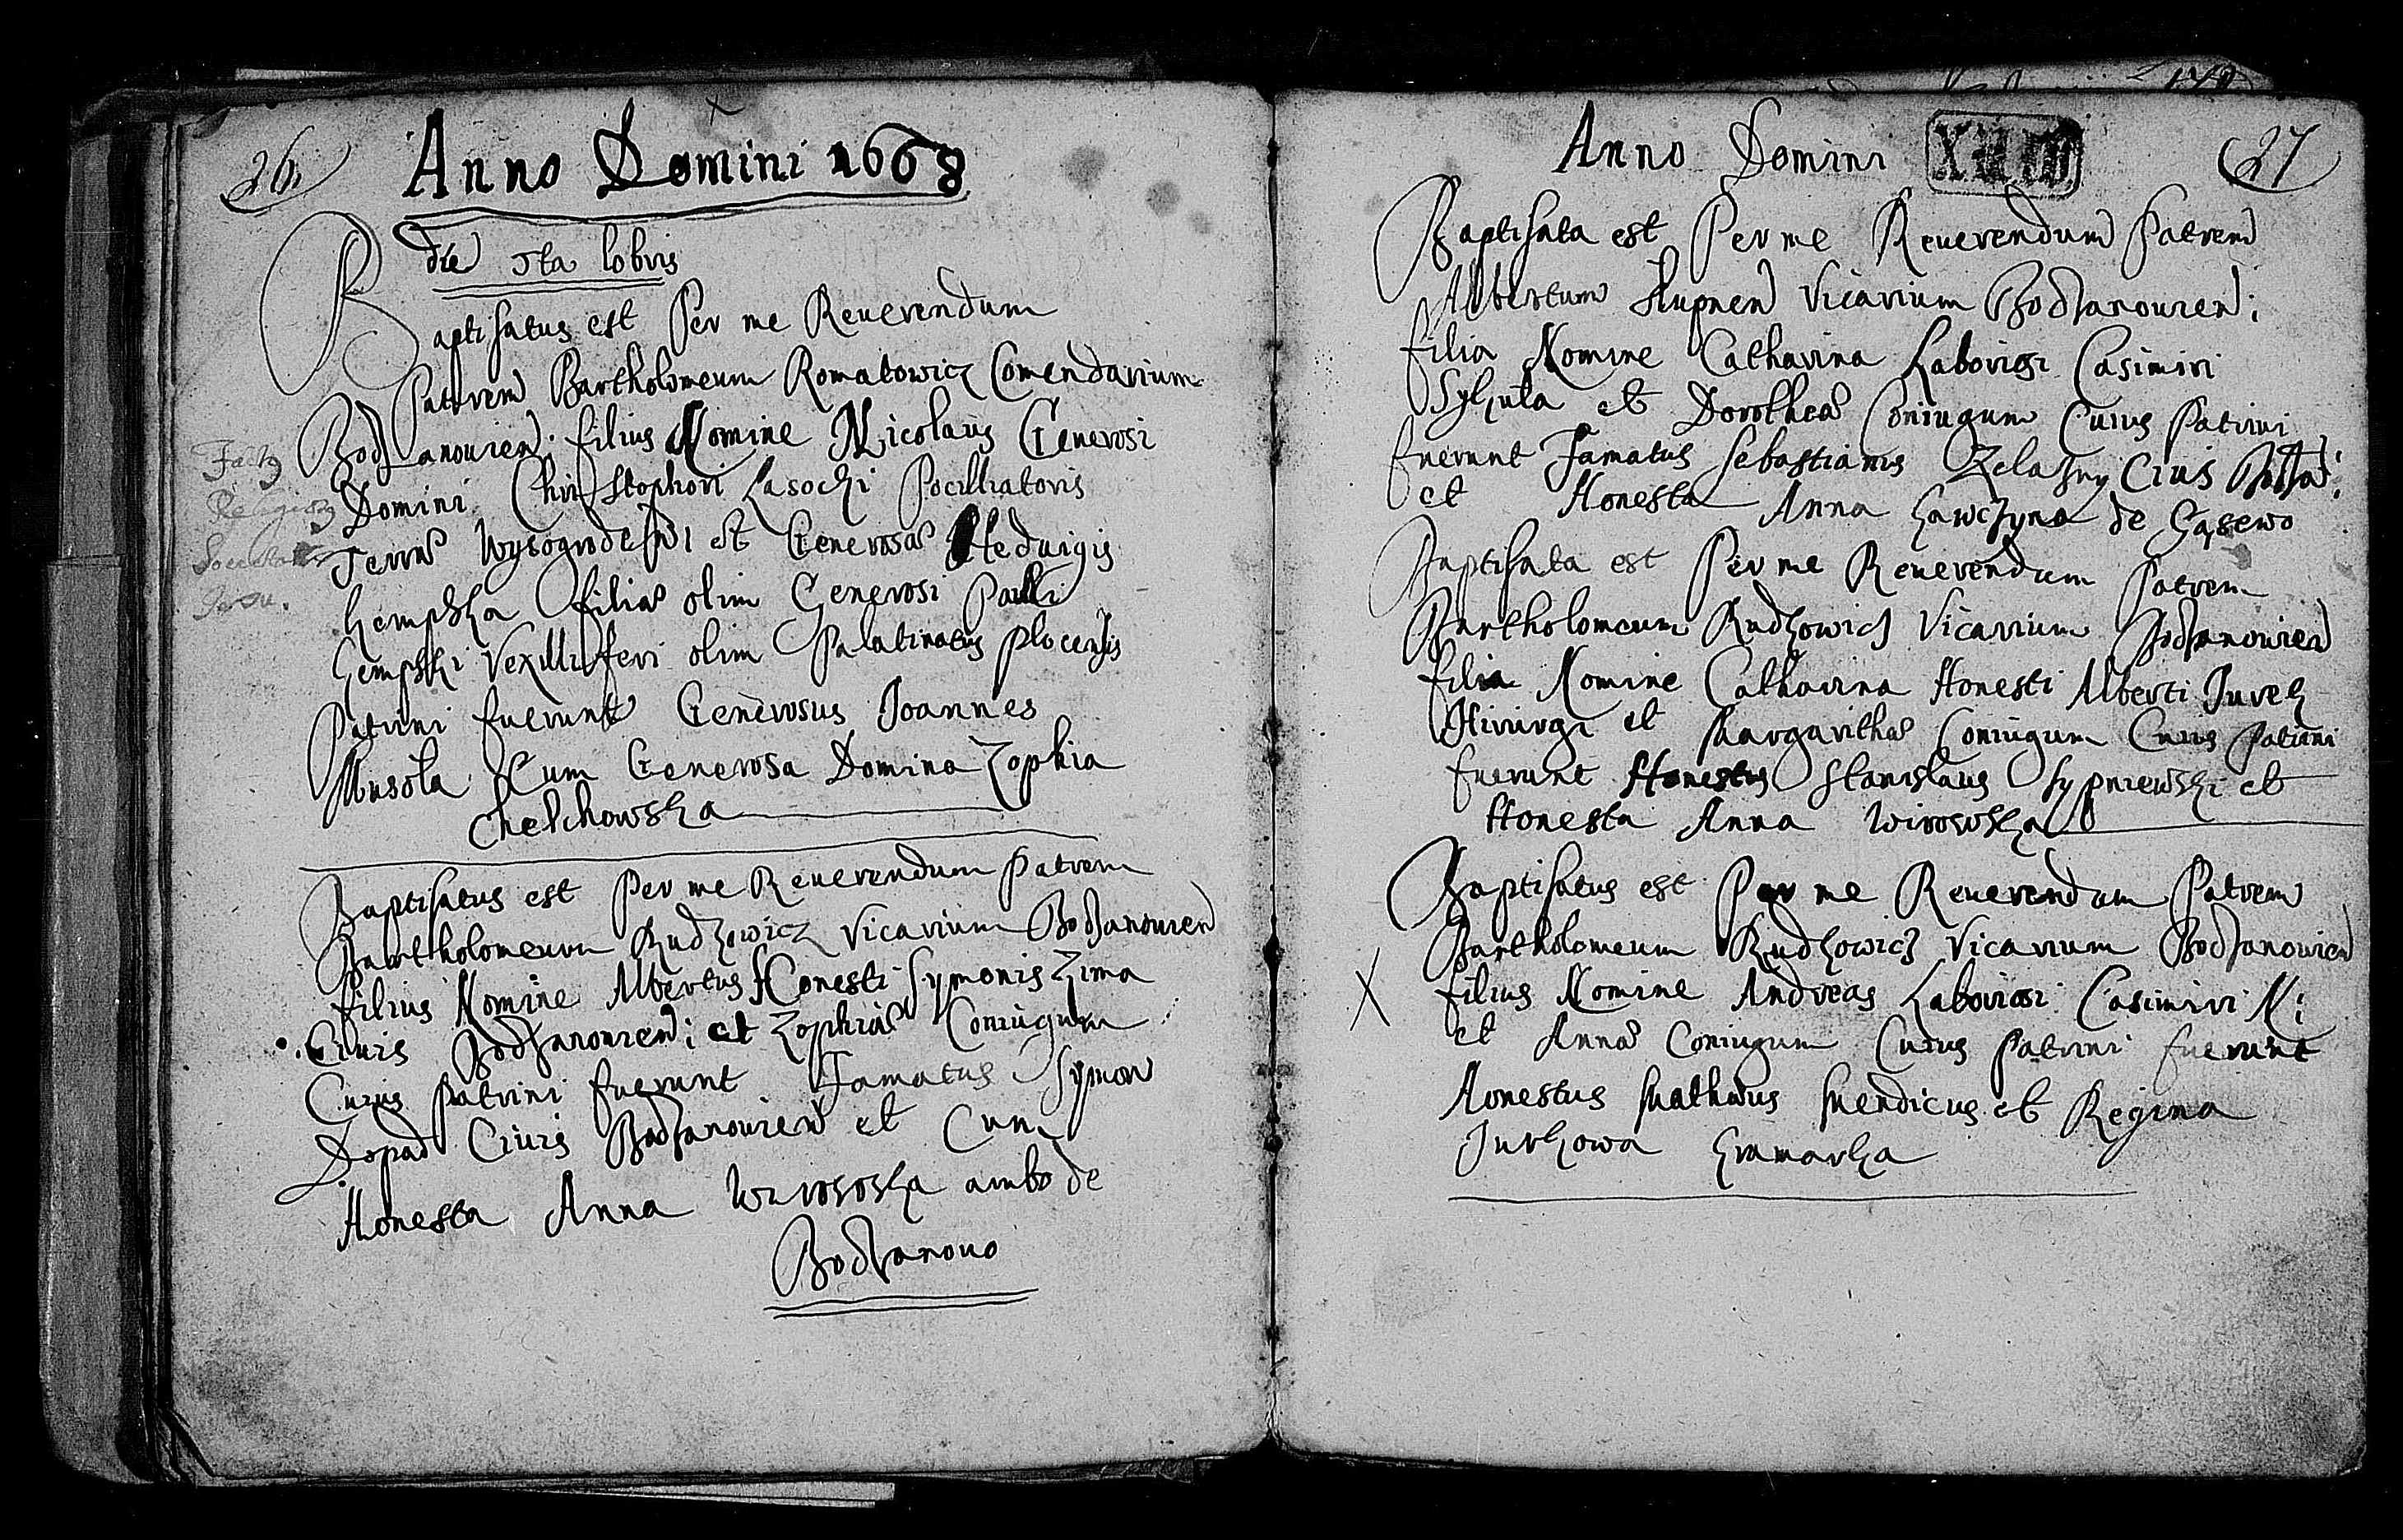 26
Anno Domini 1668
die 5ta 10bris
Baptisatus est Per me Reuerendum
Patrem Bartholomeum Romatowicz Comendarium
Bodzanouien: filius Nomine Nicolaus Generosi
Domini Christophori Lasocki Pocillatoris
Terræ Wysogrodensi et Generosæ Hedvigis
Kempska filiæ olim Generosi Pauli
Kempski Vexilliferi olim Palatinatus Plocensis
Patrini fuerunt Generosus Joannes
Cum Generosa Domina Zophia
Chelchowska
Factus
Religiosus
Societatis
Jesu.
Baptisatus est Per me Reuerendum Patrem
Bartholomeum Rudkowicz Vicarium Bodzanouien
filius Nomine Albertus Honesti Symonis Zima
Ciuis Bodzanouien: et Zophiæ Coniugum
Cuius Patrini fuerunt Famatus Symon
Dopad Ciuis Bodzanouien et Cum
Honesta Anna Wirososka ambo de
Bodzanouo
Anno Domini
27
Baptisata est Per me Reuerendum Patrem
Albertum Slupnen Vicarium Bodzanouien:
filia Nomine Catharina Laboriosi Casimiri
Szkuta et Dorotheæ Coniugum Cuius Patrini
fuerunt Famatus Sebastianus Zelazny Ciuis Bodzan:
et Honesta Anna Gawczyna de Gąsewo
Baptisata est Per me Reuerendum Patrem
Bartholomeum Rudkowicz Vicarium Bodzanouien
filia Nomine Catharina Honesti Alberti Jurek
Hirurgi et Margarithæ Coniugum Cuius Patrini
fuerunt Honestus Stanislaus Sypniewski et
Honesta Anna Wirowska
Baptisatus est Per me Reuerendum Patrem
Bartholomeum Rudkowicz Vicarium Bodzanouien
X filius Nomine Andreas Laboriosi Casimiri N:
et Annæ Coniugum Cuius Patrini fuerunt
Honestus Mathæus Mendicus et Regina
Jurkowa Kramarka